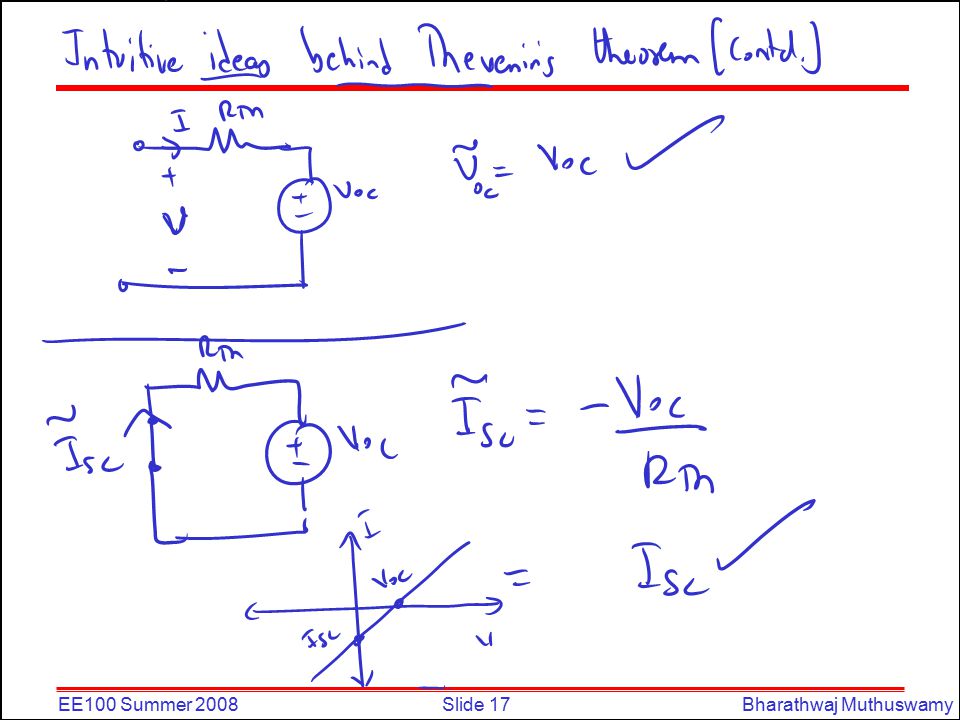 Intuitive ideas behind Thevenin's theorem [Contd.]
I RTh
+
V
-
+
-
Voc
Ṽoc = Voc ✓
RTh
Ĩsc
+
-
Voc
Ĩsc = -Voc
RTh
= Isc ✓
I
Voc
Isc
V
EE100 Summer 2008 Slide 17 Bharathwaj Muthuswamy